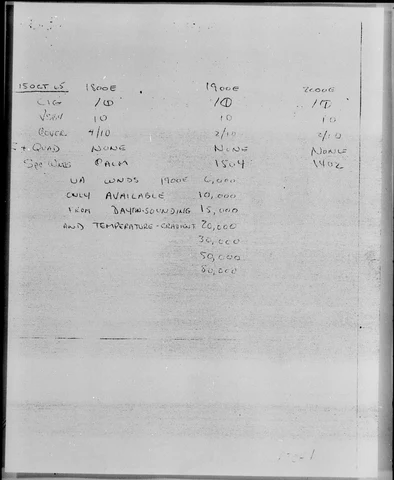 15 OCT 65 1800E 1900E 2000E
CIG /① /① /①
VSBY 10 10 10
COVER 4/10 2/10 2/10
+ QUAD NONE NONE NONE
SFC WNDS CALM 1804 1402
UA WNDS 1900E 6,000
ONLY AVAILABLE 10,000
FROM DAYTN-SOUNDING 15,000
AND TEMPERATURE-GRADIENT 20,000
30,000
50,000
80,000